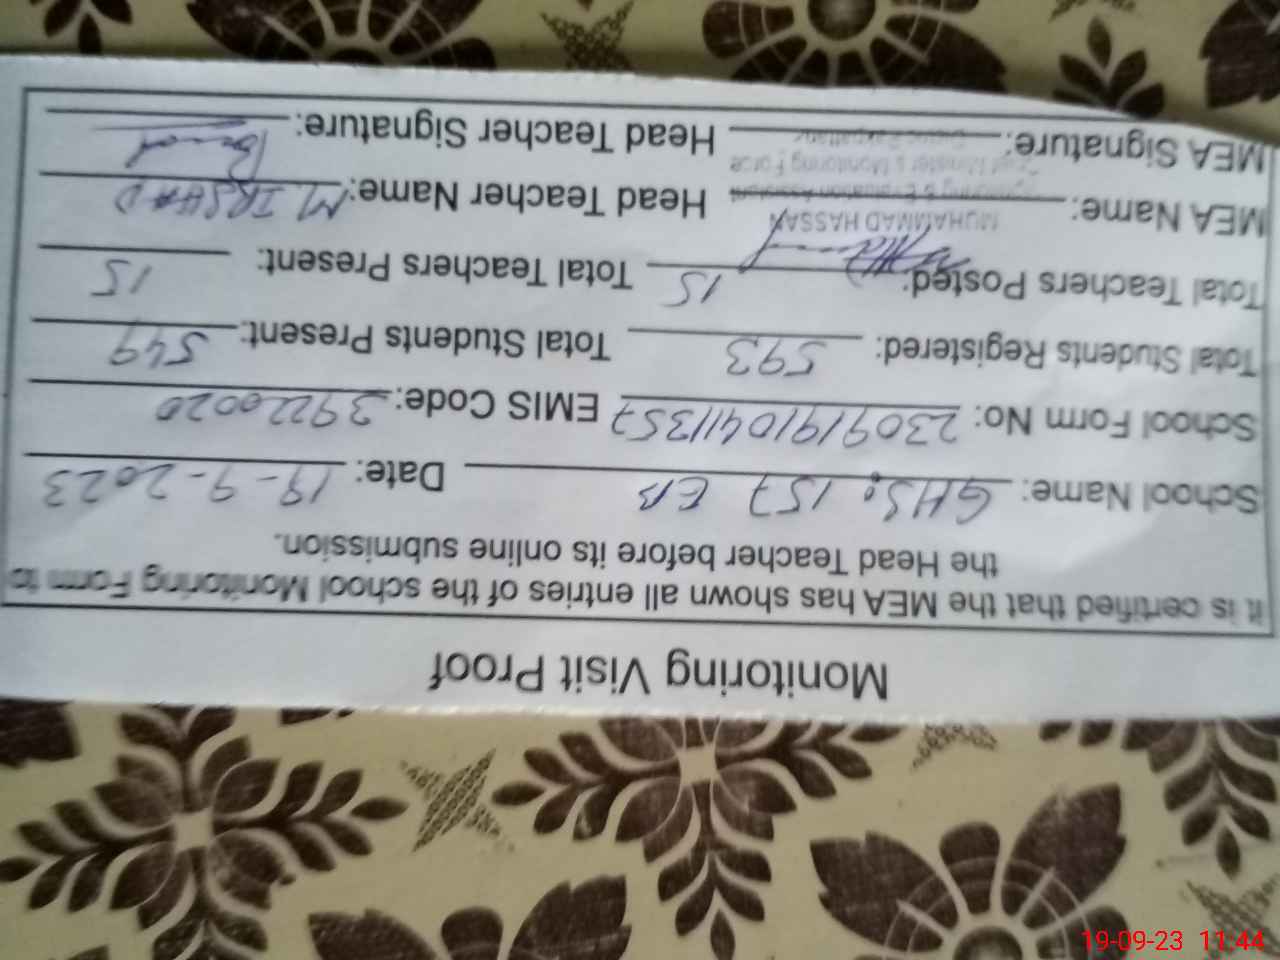 Monitoring Visit Proof
It is certified that the MEA has shown all entries of the school Monitoring Form to
the Head Teacher before its online submission.
School Name: GHS. 157 EB Date: 19-9-2023
School Form No: 230919104111357 EMIS Code: 39220020
Total Students Registered: 593 Total Students Present: 549
Total Teachers Posted: 15 Total Teachers Present: 15
MEA Name: MUHAMMAD HASSAN Head Teacher Name: M. IRSHAD
Monitoring & Evaluation Assistant
Chief Minister's Monitoring Force
MEA Signature: Head Teacher Signature:
19-09-23 11:44